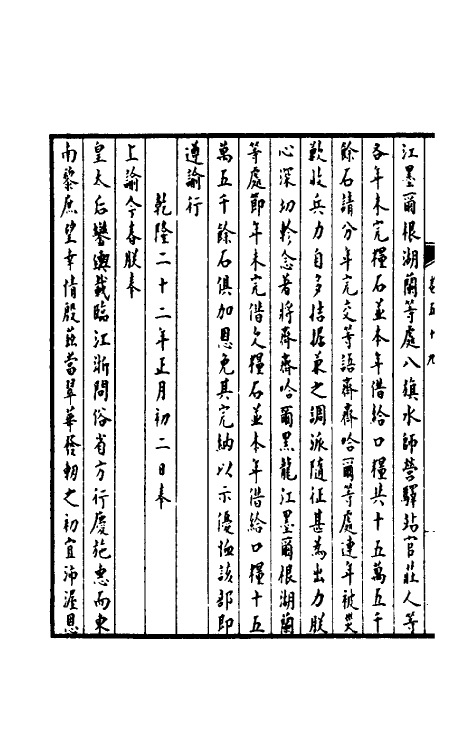 卷五十九
江墨爾根湖蘭等處八旗水師營驛站官莊人等
各年未完糧石並本年借給口糧共十五萬五千
餘石請分年完交等語齊齊哈爾等處連年被災
歉收兵力自多拮据兼之調派隨征甚為出力朕
心深切軫念著將齊齊哈爾黑龍江墨爾根湖蘭
等處節年未完借欠糧石並本年借給口糧十五
萬五千餘石俱加恩免其完納以示優恤該部即
遵諭行
乾隆二十二年正月初二日奉
上諭今春朕奉
皇太后鑾輿載臨江浙問俗省方行慶施惠而東
南黎庶望幸情殷茲當翠華發軔之初宜沛渥恩